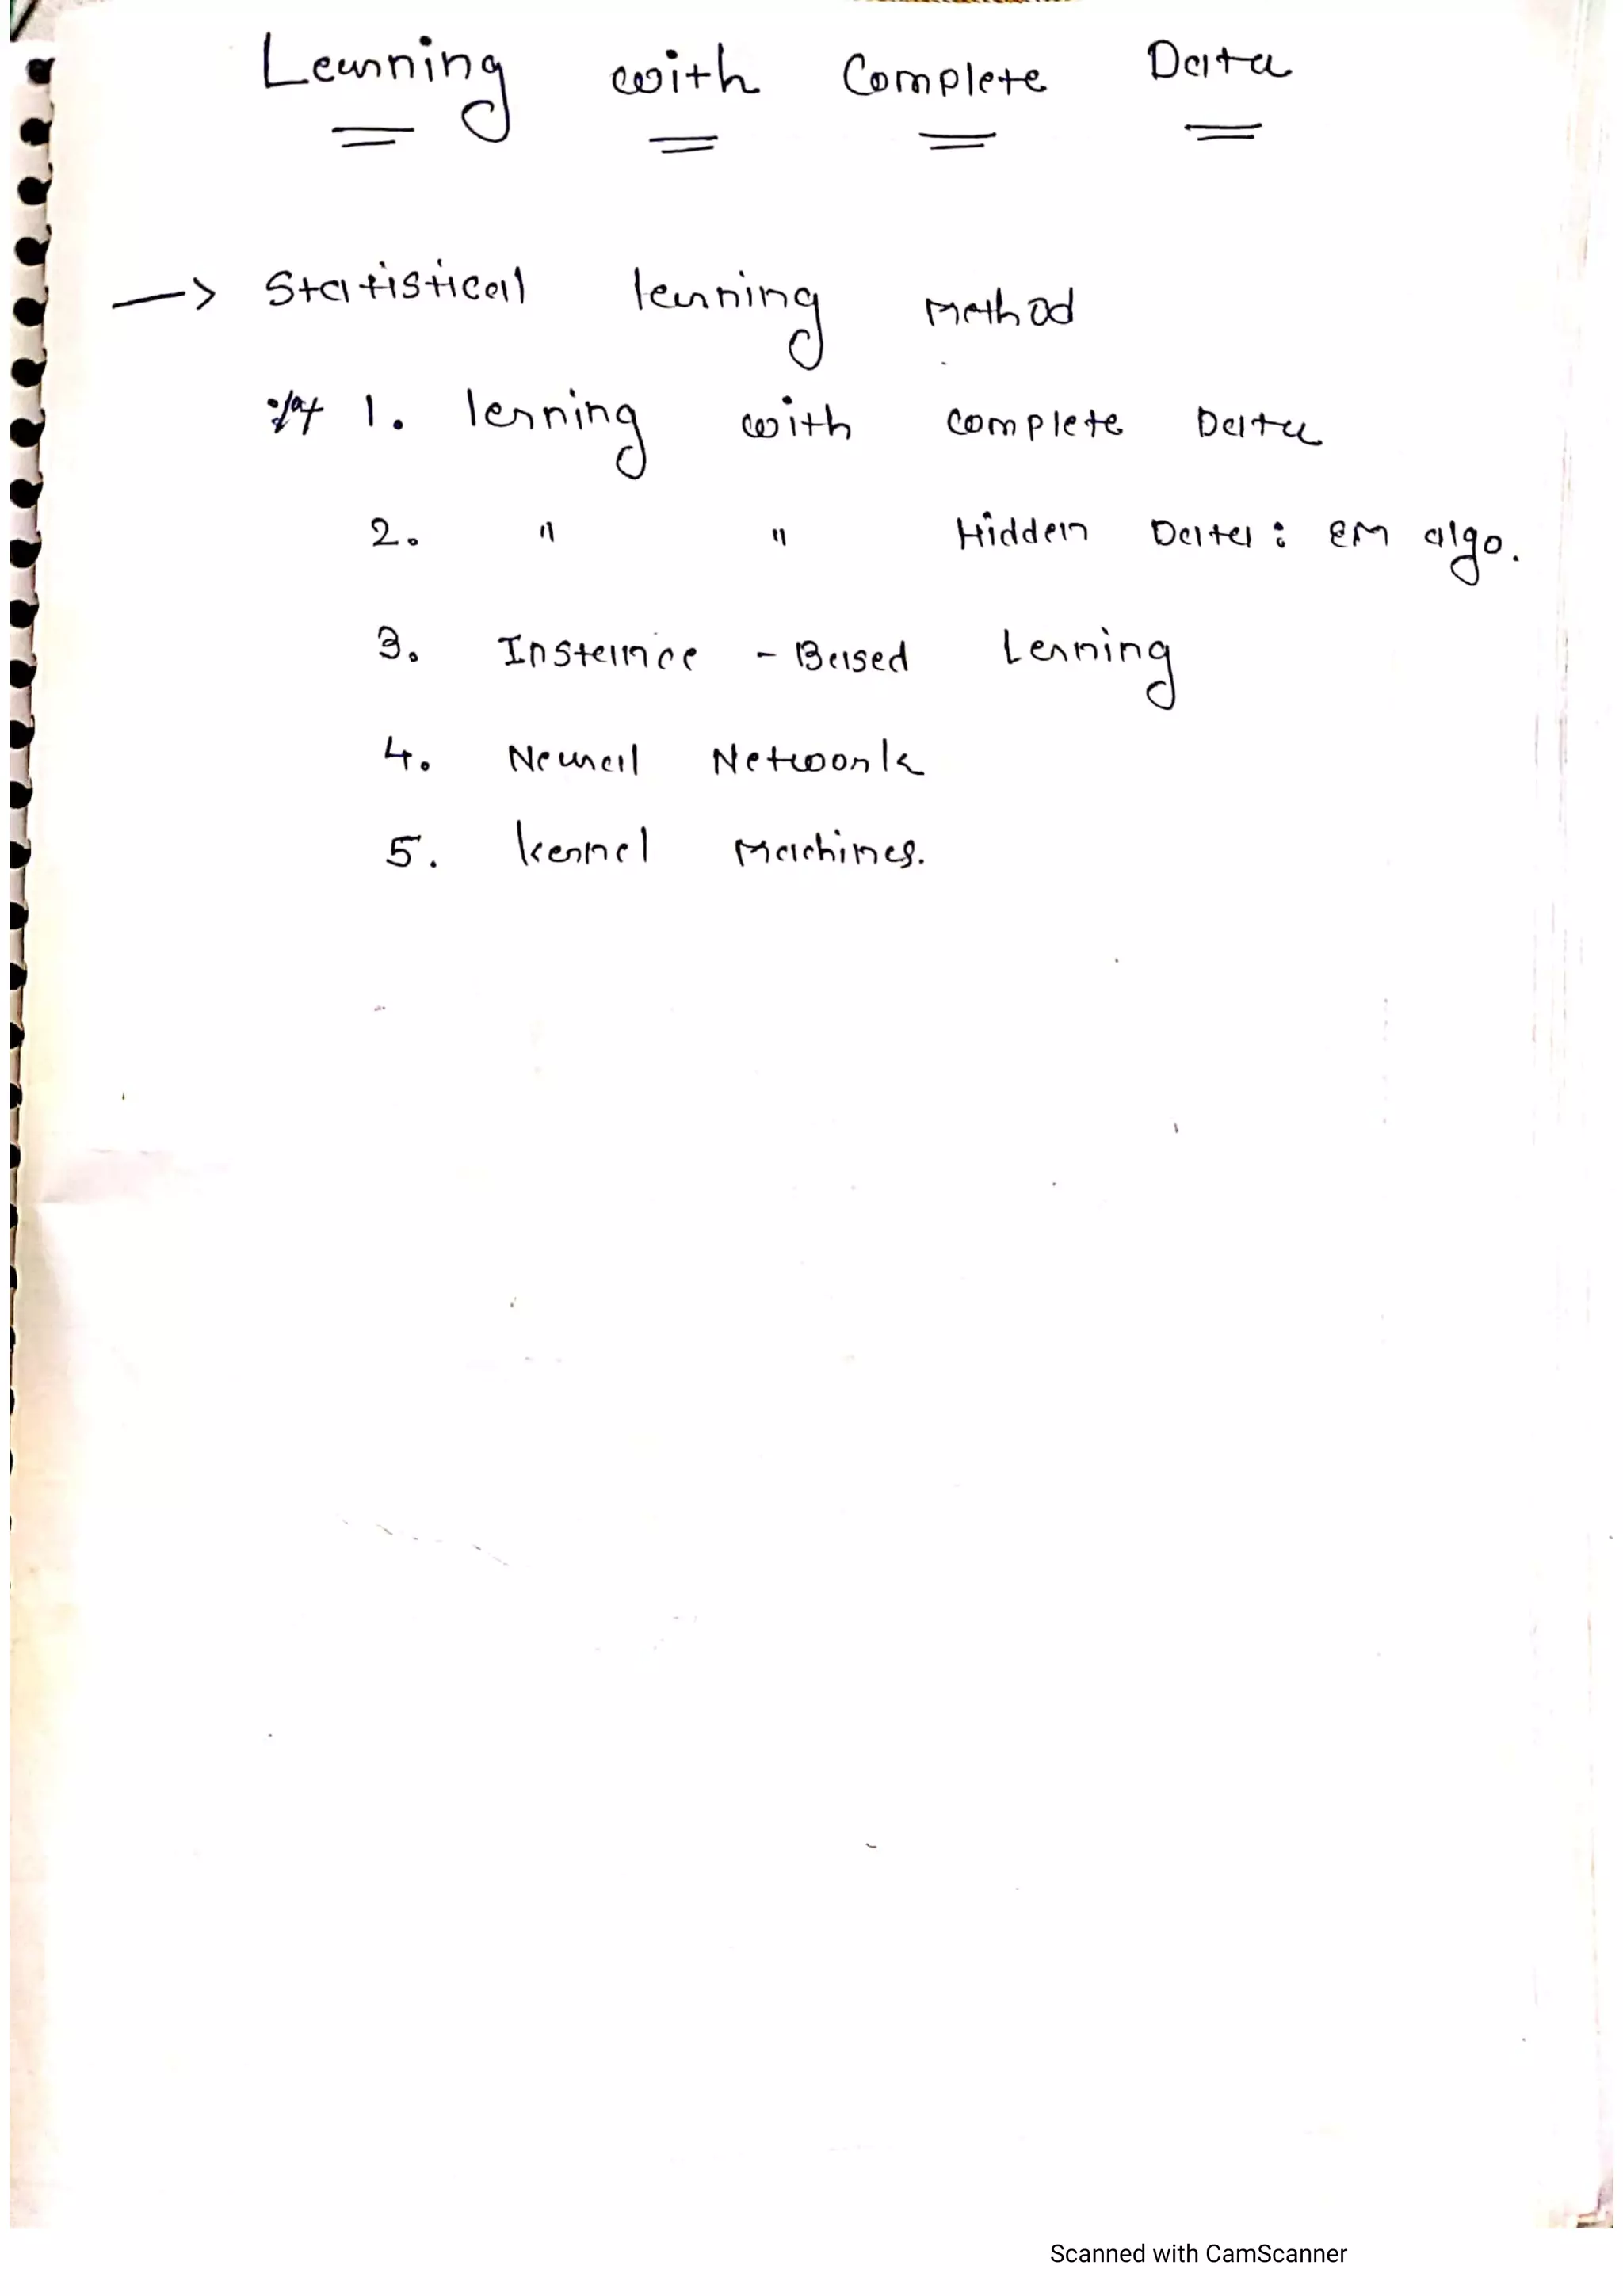 Learning with Complete Data
→ Statistical learning method
1. lerning with complete Data
2. " " Hidden Data : EM algo.
3. Instance - Based Lerning
4. Neural Network
5. kernel Machines.
Scanned with CamScanner